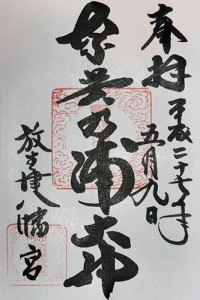 奉拝
平成二十七年
五月九日
奈呉乃浦
放生津八幡宮